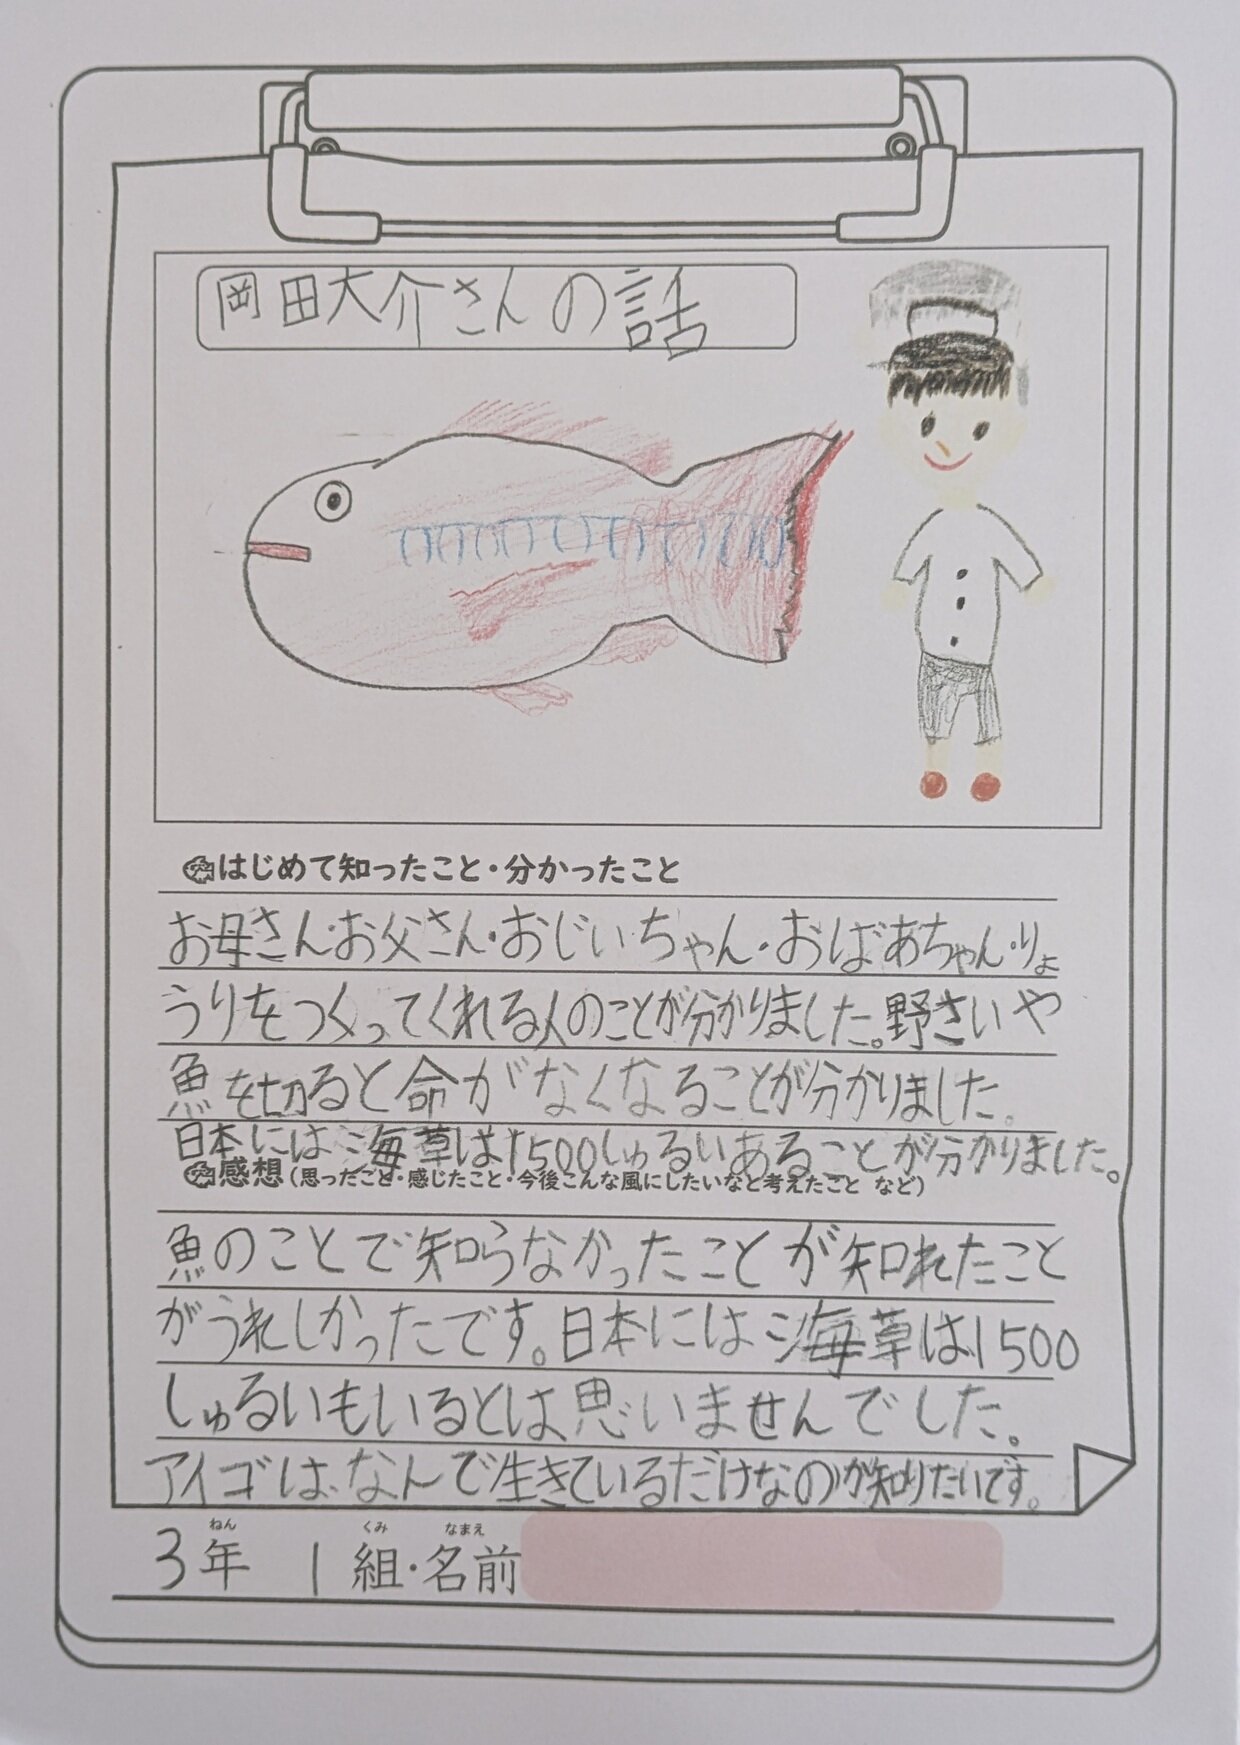 岡田大介さんの話
はじめて知ったこと・分かったこと
お母さん・お父さん・おじいちゃん・おばあちゃん・りょ
うりをつくってくれる人のことが分かりました。野さいや
魚を切ると命がなくなることが分かりました。
日本には海草は1500しゅるいあることが分かりました。
感想(思ったこと・感じたこと・今後こんな風にしたいなと考えたこと など)
魚のことで知らなかったことが知れたこと
がうれしかったです。日本には海草は1500
しゅるいもいるとは思いませんでした。
アイゴは、なんで生きているだけなのが知りたいです。
ねん くみ なまえ
3年 1組・名前